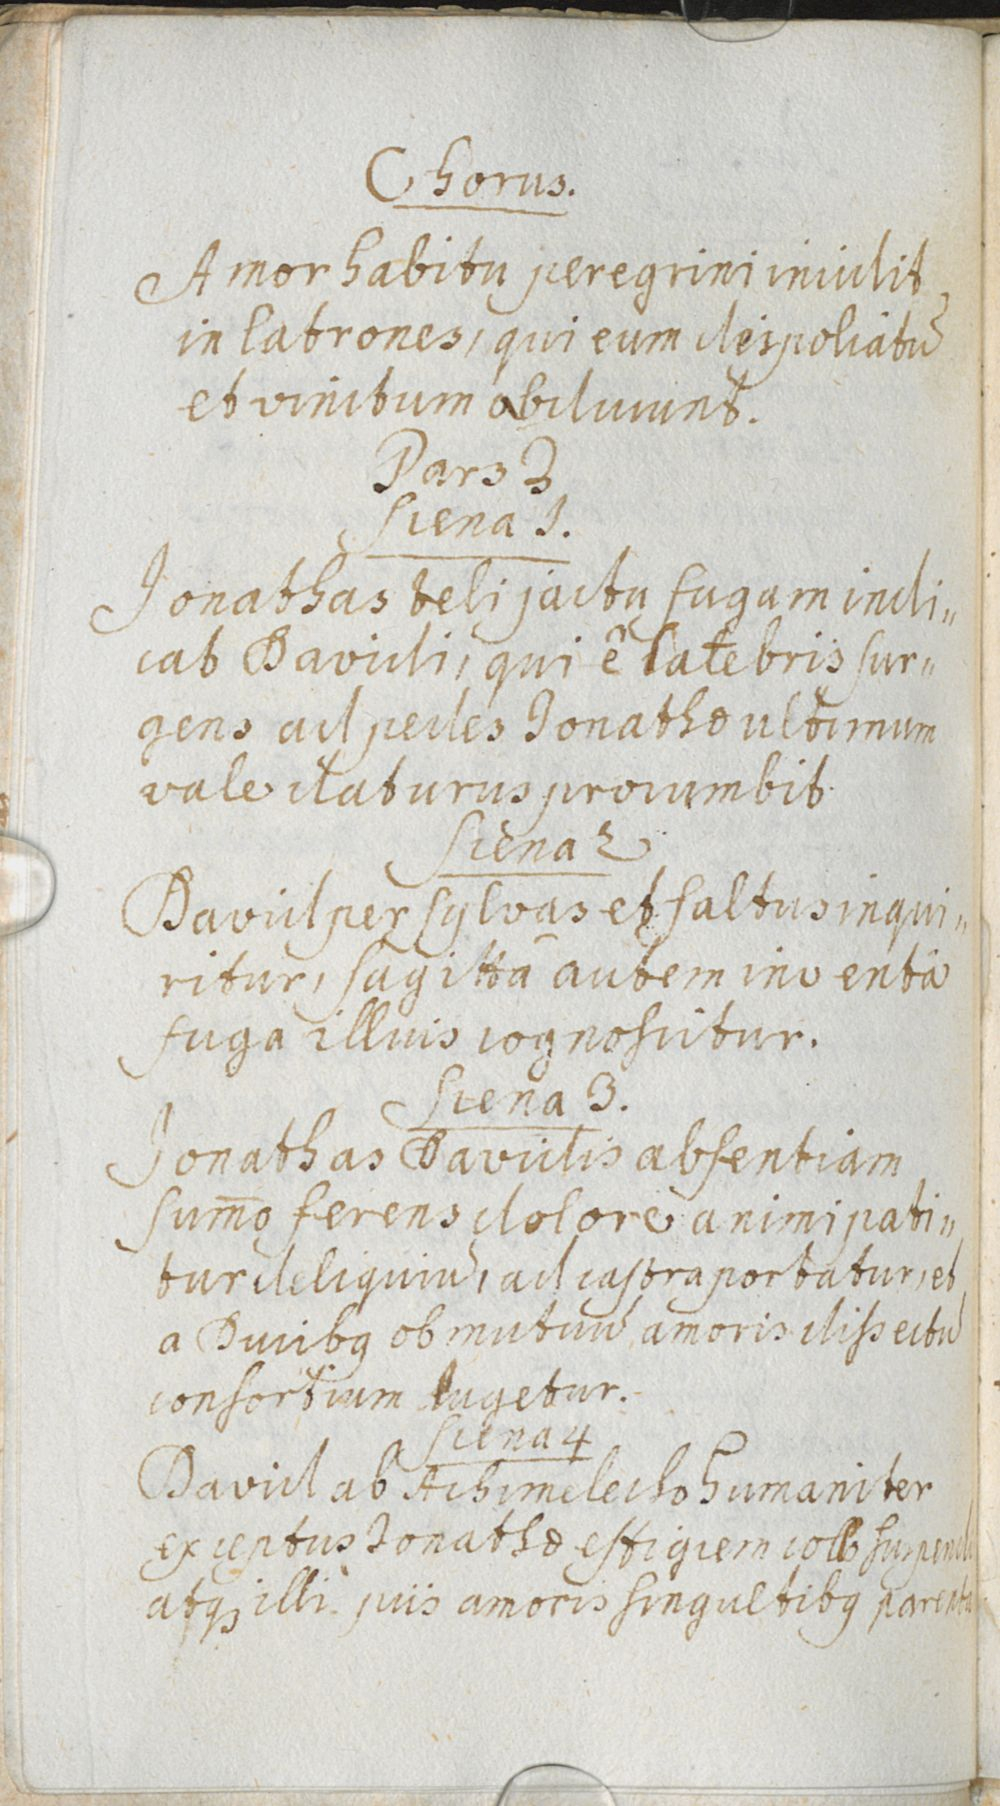 Chorus.
Amor habitu peregrini incidit
in latrones, qui eum despoliatū
et vinctum abducunt.
Pars 3
Scena 1.
Jonathas teli jactu fugam indi„
cat Davidi, qui ê latebris sur„
gens ad pedes Jonathæ ultimum
vale daturus procumbit
Scena 2
David per sylvas et saltus inqui„
ritur, sagittâ autem inventâ
fuga illius cognoscitur.
Scena 3.
Jonathas Davidis absentiam
sum̄o ferens dolore animi pati„
tur deliquiū, ad castra portatur, et
a Ducibq ob mutuū amoris dissectū
consortium lugetur.
Scena 4
David ab Achimelecho humaniter
exceptus Jonathæ effigiem collo
atq; illi piis amoris singultibq